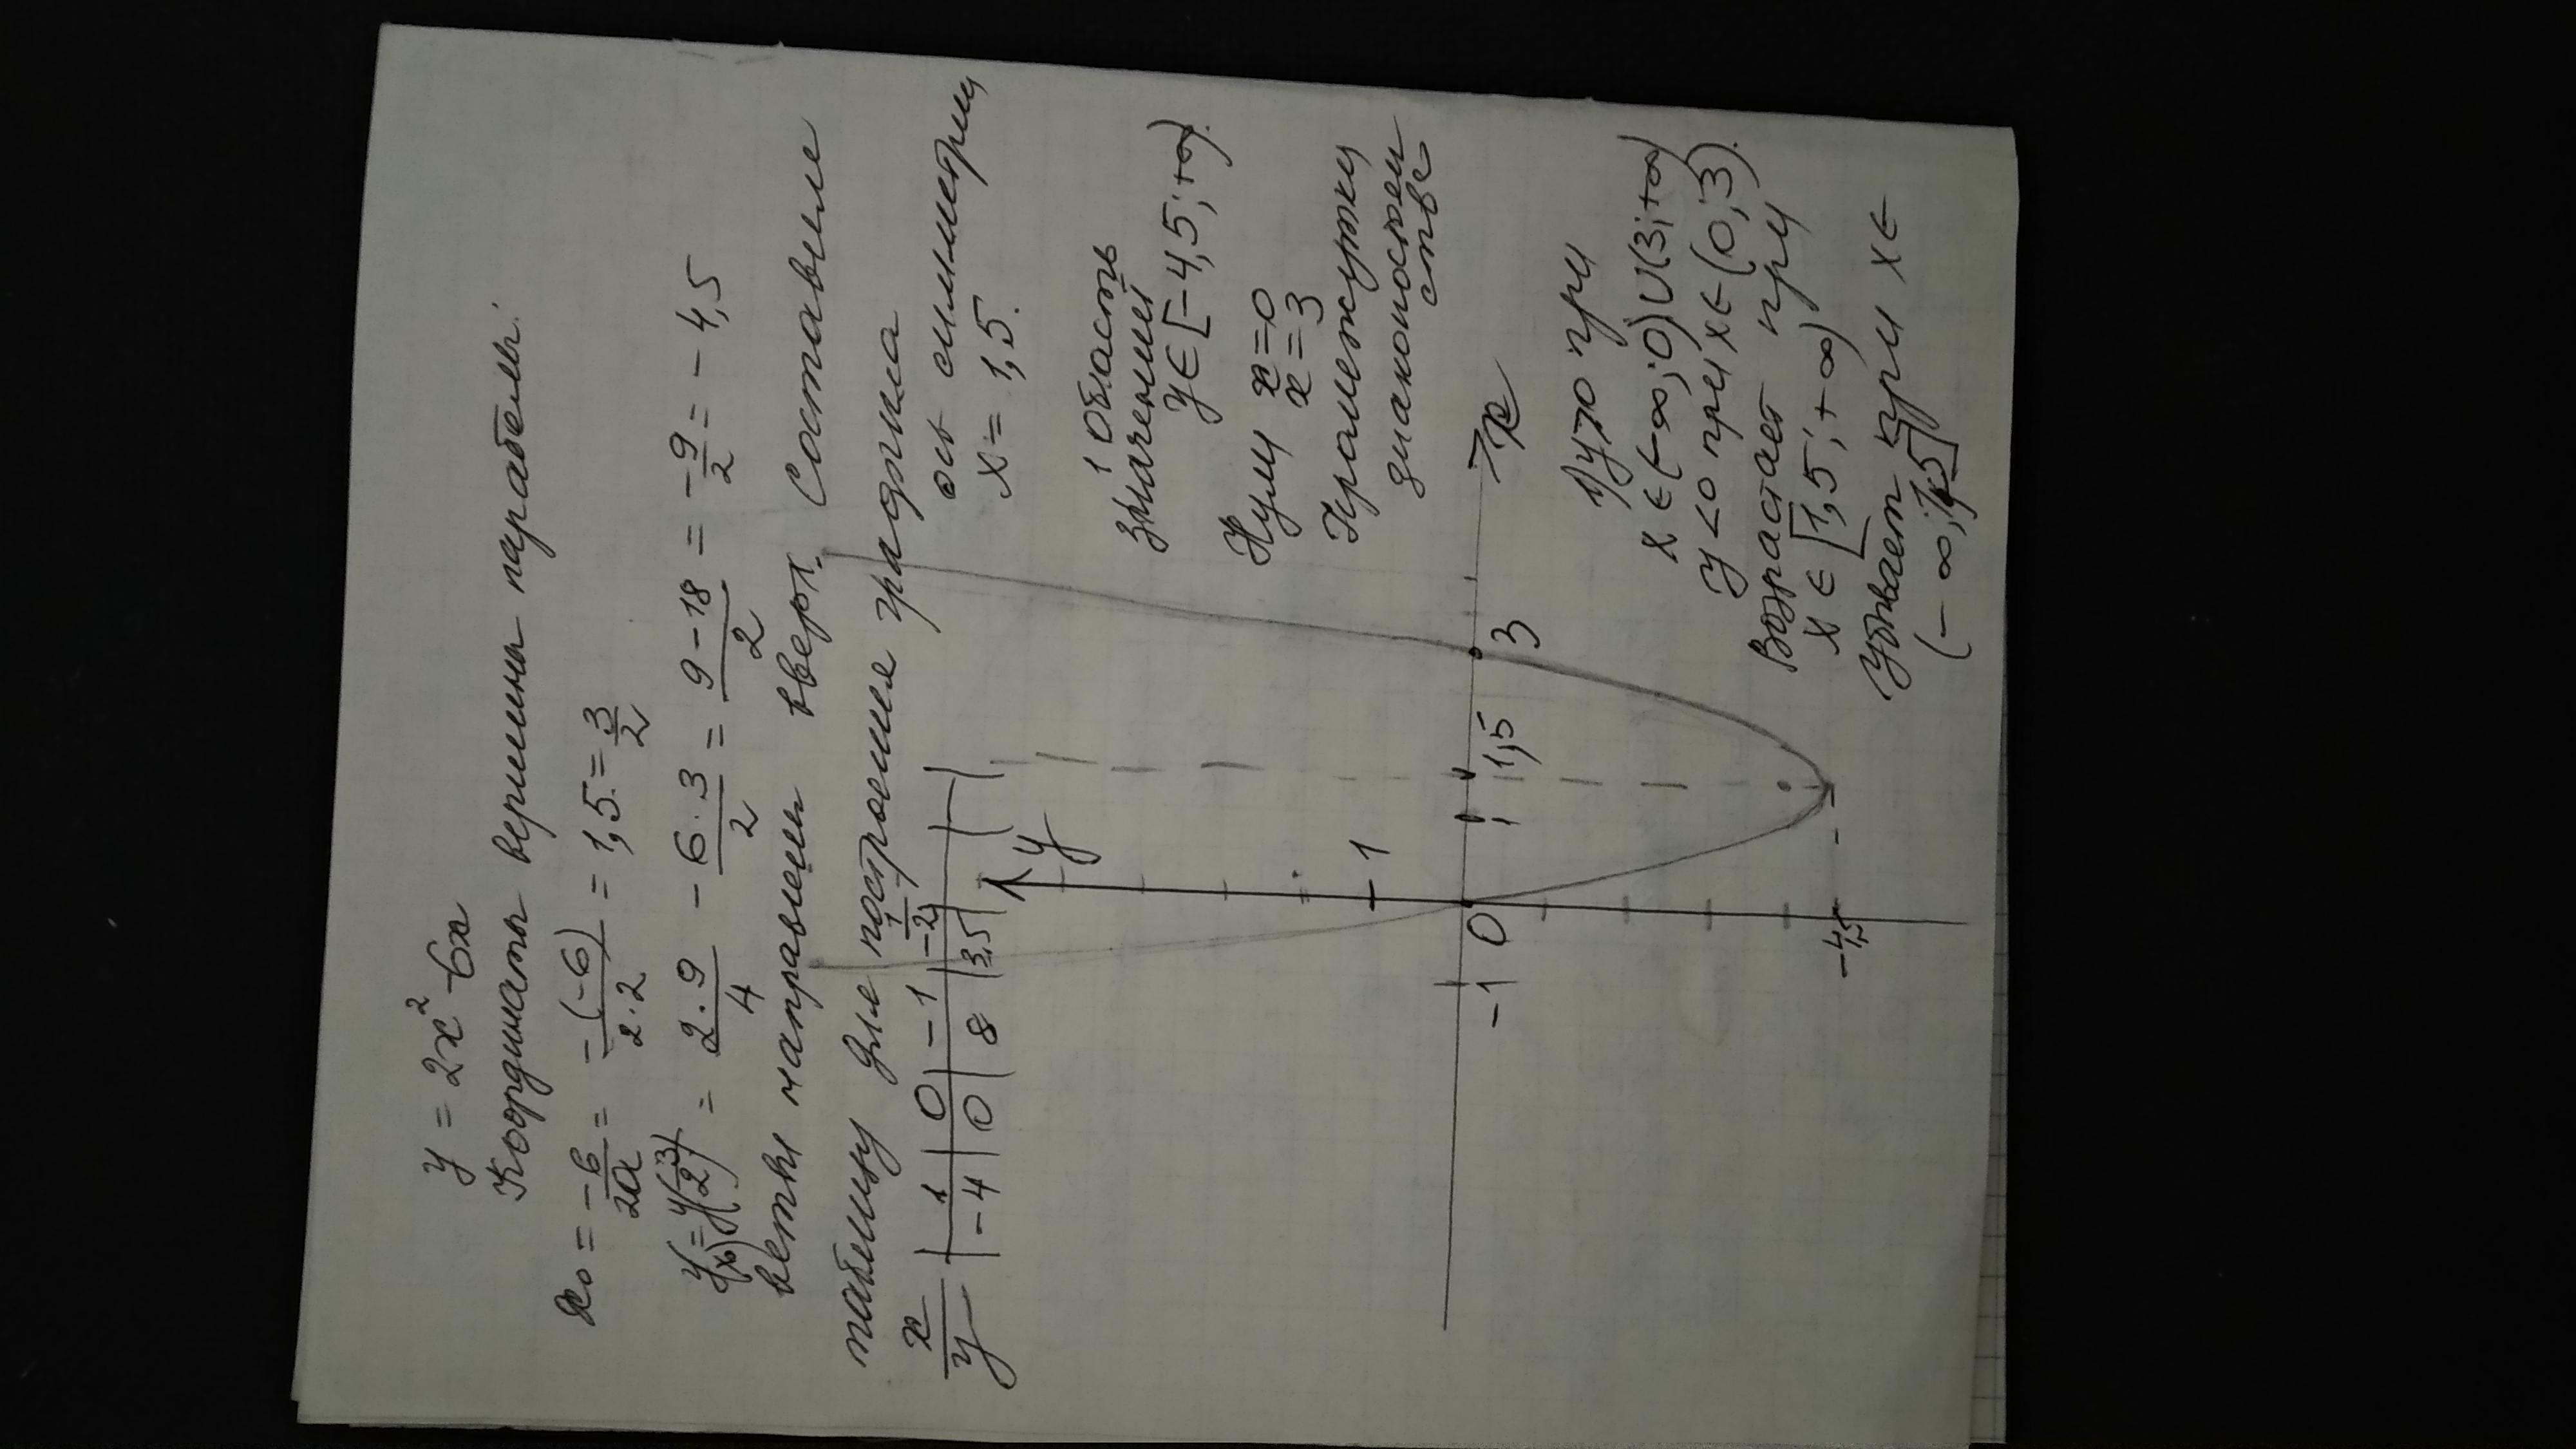 y = 2x² - 6x
Координаты вершины параболы:
x₀ = -b/2a = -(-6)/2·2 = 1,5 = 3/2
y(x₀) = y(3/2) = 2·9/4 - 6·3/2 = 9-18/2 = -9/2 = -4,5
ветви направлены вверх. Составим
таблицу для построения графика
x | 1 | 0 | -1 | -1/2
y | -4 | 0 | 8 | 3,5
ось симметрии
x = 1,5.
1 Область
значений
y ∈ [-4,5; +∞).
Нули x=0
x=3
Промежутки
знакопостоян
ства
y
1
-1 0 1 1,5 3 x
-4,5
1) y>0 при
x ∈ (-∞; 0) ∪ (3; +∞)
y<0 при x ∈ (0; 3).
Возрастает при
x ∈ [1,5; +∞)
Убывает при x ∈
(-∞; 1,5]